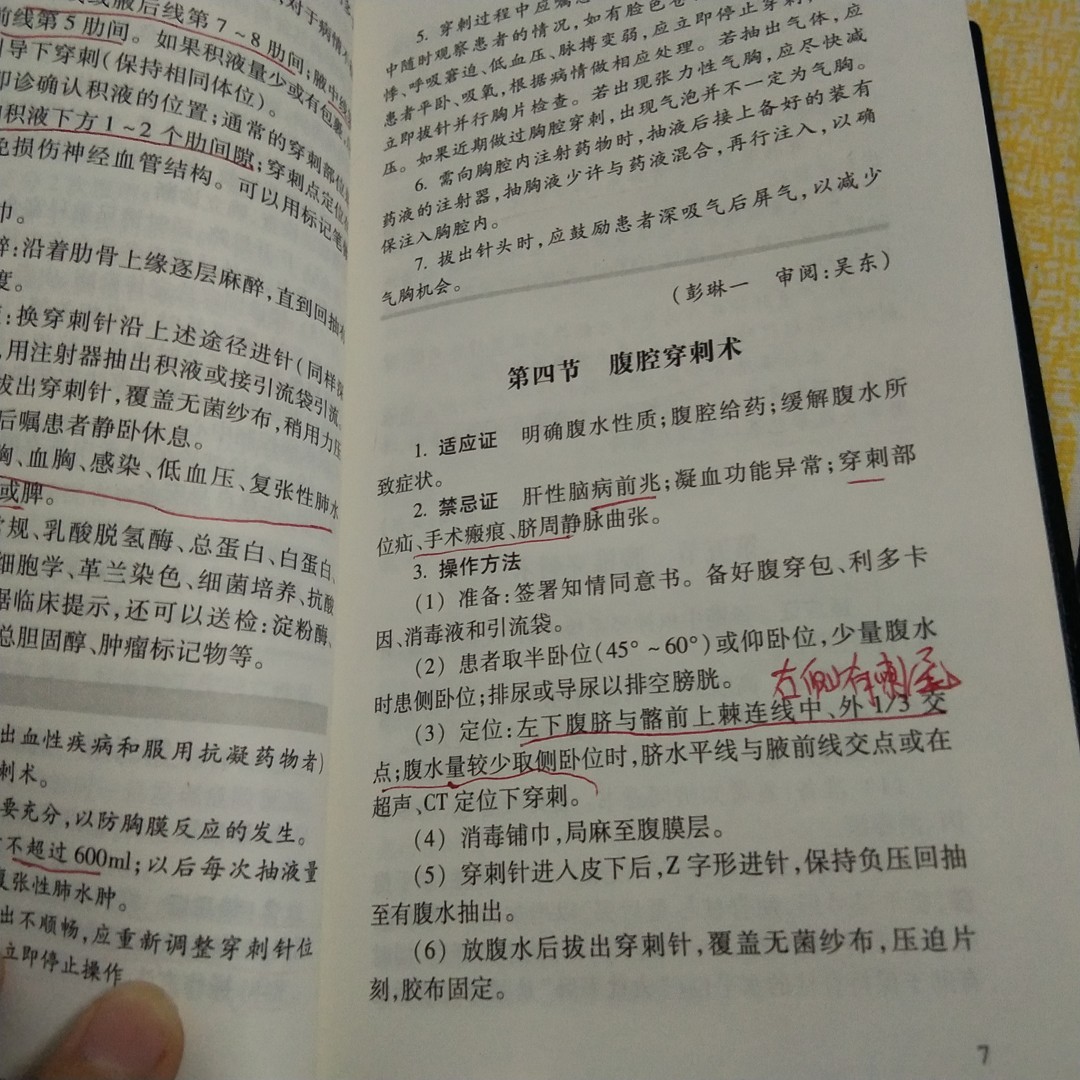 腋后线第7~8肋间；腋中线
前线第5肋间。如果积液量少或有包裹
导下穿刺(保持相同体位)。
即诊确认积液的位置；通常的穿刺部位
积液下方1~2个肋间隙；穿刺点定位
免损伤神经血管结构。可以用标记笔
巾。
醉：沿着肋骨上缘逐层麻醉，直到回抽
度。
：换穿刺针沿上述途径进针(同样
，用注射器抽出积液或接引流袋引流。
拔出穿刺针，覆盖无菌纱布，稍用力压
后嘱患者静卧休息。
胸、血胸、感染、低血压、复张性肺水
或脾。
常规、乳酸脱氢酶、总蛋白、白蛋白、
细胞学、革兰染色、细菌培养、抗酸
据临床提示，还可以送检：淀粉酶、
总胆固醇、肿瘤标记物等。
出血性疾病和服用抗凝药物者)
刺术。
要充分，以防胸膜反应的发生。
不超过600ml；以后每次抽液量
复张性肺水肿。
出不顺畅，应重新调整穿刺针位
立即停止操作
5. 穿刺过程中应嘱
中随时观察患者的情况，如有脸色苍
悸、呼吸窘迫、低血压、脉搏变弱，应立即停止穿刺
患者平卧、吸氧，根据病情做相应处理。若抽出气体，应
立即拔针并行胸片检查。若出现张力性气胸，应尽快减
压。如果近期做过胸腔穿刺，出现气泡并不一定为气胸。
6. 需向胸腔内注射药物时，抽液后接上备好的装有
药液的注射器，抽胸液少许与药液混合，再行注入，以确
保注入胸腔内。
7. 拔出针头时，应鼓励患者深吸气后屏气，以减少
气胸机会。
(彭琳一 审阅：吴东)
第四节 腹腔穿刺术
1. 适应证 明确腹水性质；腹腔给药；缓解腹水所
致症状。
2. 禁忌证 肝性脑病前兆；凝血功能异常；穿刺部
位疝、手术瘢痕、脐周静脉曲张。
3. 操作方法
(1) 准备：签署知情同意书。备好腹穿包、利多卡
因、消毒液和引流袋。
(2) 患者取半卧位(45°~60°)或仰卧位，少量腹水
时患侧卧位；排尿或导尿以排空膀胱。
(3) 定位：左下腹脐与髂前上棘连线中、外1/3交
点；腹水量较少取侧卧位时，脐水平线与腋前线交点或在
超声、CT定位下穿刺。
(4) 消毒铺巾，局麻至腹膜层。
(5) 穿刺针进入皮下后，Z字形进针，保持负压回抽
至有腹水抽出。
(6) 放腹水后拔出穿刺针，覆盖无菌纱布，压迫片
刻，胶布固定。
7